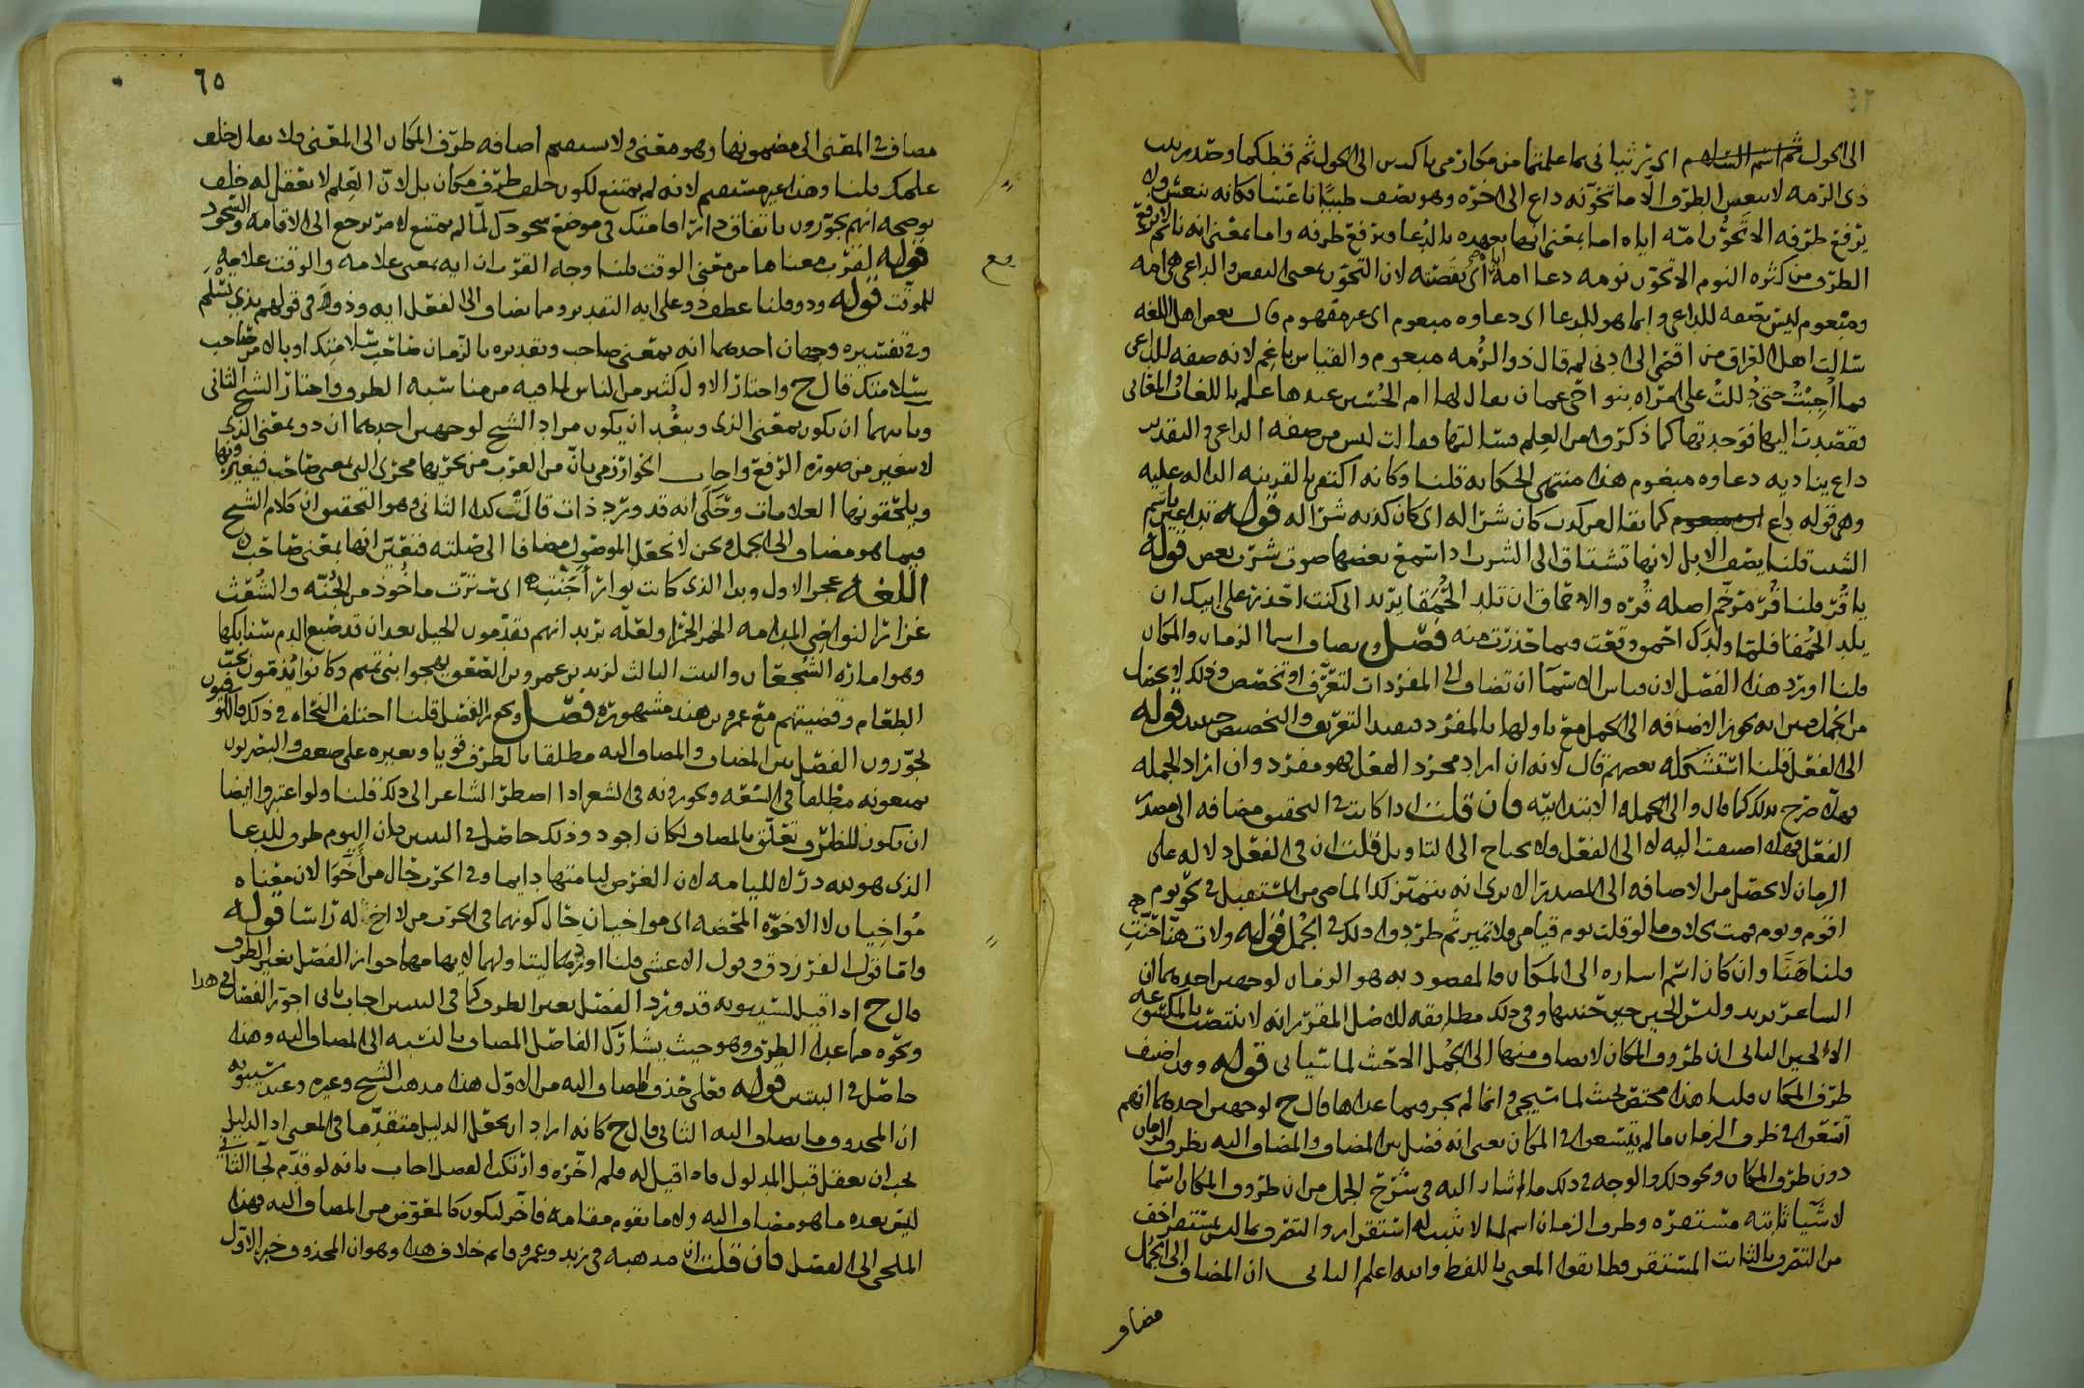 الى الحول ثم اسم السلام اى ترثيانى بما علمتما من مكارمى باكيين الى الحول ثم قطكما وحدو بيت
ذى الرمه لا ينعش الطرف الا ما تخونه داع الى اخره وهو يصف طبيا ناعسا فكانه ينعش ولا
يرفع طرفه الا تخون امه اياه اما بمعنى انها تعهده بالدعا فيرفع طرفه واما بمعنى انه نائم لا يرفع
الطرف من كثره النوم الا تخون نومه دعا امه اى نقصته لان التخون بمعنى النقص والداعى هى امه
ومبغوم ليس بصفه للداعى وانما هو للدعا اى دعاوه مبغوم اى غير مفهوم قال بعض اهل اللغه
سالت اهل العراق من اقصى الى ادنى لم قال ذو الرمه مبغوم والقياس باغم لانه صفه للداعى
فما اجبت حتى دللت على امراه بنواحى عمان يقال لها ام الحسين عندها علم باللغات والمعانى
فقصدت اليها فوجدتها كما ذكروا من العلم فسالتها فقالت ليس من صفه الداعى والتقدير
داع يناديه دعاوه مبغوم هذا منتهى الحكايه قلنا وكانه اكتفى بالقرينه الداله عليه
وهى قوله داع كما يقال من كذب كان شرا له اى كان كذبه شرا له قوله تداعين باسم
الشيب قلنا يصف الابل لانها تشتاق الى الشرب اذا سمع بعضها صوت شرب بعض قوله
يا قر قلنا قر مرخم اصله قره والاحماق ان تلد الحمقا يريد انى كنت اخذرها على ابيك ان
يلد الحمقا فلما ولدك احمق وقعت فيما حذرت منه فصل ويضاف اسما الزمان والمكان
قلنا اورد هذا الفصل لان قياس الاسما ان تضاف الى المفردات لتعرف او تخصص وذلك لا يحصل
من الجمل فبين انه يجوز الاضافه الى الجمل مع تاولها بالمفرد فيفيد التعريف والتخصيص حينئذ قوله
الى الفعل قلنا استشكله بعضهم قال لانه ان اراد مجرد الفعل فهو مفرد وان اراد الجمله
فهلا صرح بذلك كما قال والى الجمله الابتدائيه فان قلت اذا كانت فى التحقيق مضافه الى مصدر
الفعل فهلا اضيفت اليه لا الى الفعل ولا يحتاج الى التاويل قلت ان فى الفعل دلاله على
الزمان لا تحصل من الاضافه الى المصدر الا ترى انه يتميز لك الماضى من المستقبل فى نحو يوم
اقوم ويوم قمت بخلاف ما لو قلت يوم قيامى ولا تميز ثم طردوا ذلك فى الجمل قوله ولات هنا حنت
قلنا هنا وان كان اسم اشاره الى المكان فالمقصود به هو الزمان لوجهين احدهما ان
الشاعر يريد وليس الحين حين حنينها وفى ذلك مطابقه للاصل المقرر انه لا ينتصب بالمكسوعه
الا الحين الثانى ان ظروف المكان لا يضاف منها الى الجمل الا حيث لما سياتى قوله وقد اضيف
ظرف المكان قلنا هذا مختص بحيث لما سيجى وانما لم يجر فيما عداها قال ح لوجهين احدهما انهم
اتسعوا فى ظرف الزمان ما لم يتسعوا فى المكان يعنى انه فصل بين المضاف والمضاف اليه بظرف الزمان
دون ظرف المكان ونحو ذلك والوجه فى ذلك ما اشار اليه فى شرح الجمل من ان ظروف المكان اسما
لاشيا ثابته مستقره وظرف الزمان اسم لما لا ثبت له استقرار والتصرف بما ليس بمستقر اخف
من التصرف بالثابت المستقر وطابقوا المعنى باللفظ والله اعلم الثانى ان المضاف الى الجمل
مضاف
٦٥
مضاف فى المعنى الى مضمونها وهو معنى ولا يستقيم اضافه ظرف المكان الى المعنى فلا يقال خلف
علمك قلنا وهذا غير مستقيم لانه لم يمتنع لكون خلف ظرف مكان بل لان العلم لا يعقل له خلف
يوضحه انهم يجوزون باتفاق دار اقامتك فى موضع سجودك لما لم يمتنع الامر يرجع الى الاقامه والسجود
قوله لقرب معناها من معنى الوقت قلنا وجه القرب ان ايه بمعنى علامه والوقت علامه
للموقت قوله وذو قلنا عطف ذو على ايه التقدير ومما يضاف الى الفعل ايه وذو فى قولهم بذى تسلم
وفى تفسيره وجهان احدهما انه بمعنى صاحب وتقديره بالزمان صاحب سلامتك او بالامر صاحب
سلامتك قال ح واختار الاول كثير من الناس لما فيه من مناسبه الظروف واختار الشيخ الثانى
وثانيهما ان يكون بمعنى الذى ويبعد ان يكون مراد الشيخ لوجهين احدهما ان ذو بمعنى الذى
لا يتغير من صوره الرفع واجاب الخوارزمى بان من العرب من يجريها مجرى التى بمعنى صاحب فيغيرونها
ويلحقونها العلامات وحكى انه قد ورد ذات قالت كذا الثانى وهو التحقيق ان كلام الشيخ
فيما هو مضاف الى الجمل ونحن لا نجعل الموصول مضافا الى صلته فتعين انها بمعنى صاحب
اللغه عجز الاول وبدا الذى كانت نوار اجنت اى سترت ماخوذ من الجنه والشعث
غزائر النواصى المدامه الخمر ولعله يريد انهم يقدمون الخيل بعد ان قد صبغ الدم سنابكها
وهو اماره الشجعان والبيت الثالث لزيد بن عمرو بن الصعق يهجوا بنى تميم وكانوا يذمون بحب
الطعام وقضيتهم مع عمرو بن هند مشهوره فصل ويجوز الفصل قلنا اختلف النحاه فى ذلك فالكوفيون
يجوزون الفصل بين المضاف والمضاف اليه مطلقا بالظرف قويا وبغيره على ضعف والبصريون
يمنعونه مطلقا فى السعه ويجوزونه فى الشعر اذا اضطر الشاعر الى ذلك قلنا ولو اعتبروا ايضا
ان يكون للظرف تعلق بالمضاف لكان اجود وذلك حاصل فى البيتين فان اليوم ظرف للدعا
الذى هو لله در لا للملامه لان الغرض لملامتها دايما وفى الحرب حال من اخوا لان معناه
مواخيان لا الاخوه المحضه اى مواخيان حال كونهما فى الحرب من لا اخ له راسا قوله
واما قول الفرزدق وقول الاعشى قلنا اوردهما ليتاولهما لايهامهما جواز الفصل بغير الظرف
قال ح اذا قيل لسيبويه قد ورد الفصل بغير الظرف كما فى البيتين اجاب بانى اجوز الفصل فى هذا
ونحوه مما عدا الظرف وهو حيث يشارك الفاصل المضاف بالنسبه الى المضاف اليه وهذا
حاصل فى البيتين قوله فعلى حذف المضاف اليه من الاول هذا مذهب الشيخ وغيره وعند سيبويه
ان المحذوف ما يضاف اليه الثانى قال ح كانه اراد ان يجعل الدليل متقدما فى المعنى اذ الدليل
يجب ان يعقل قبل المدلول فاذا قيل له فلم اخره وارتكب الفصل اجاب بانه لو قدم لجا الثانى
ليس بعده ما هو مضاف اليه ولا ما يقوم مقامه فاخر ليكون كالعوض من المضاف اليه فهذا
الملجى الى الفصل فان قلت ان مذهبه فى زيد وعمرو قائم خلاف هذا وهو ان المحذوف خبر الاول